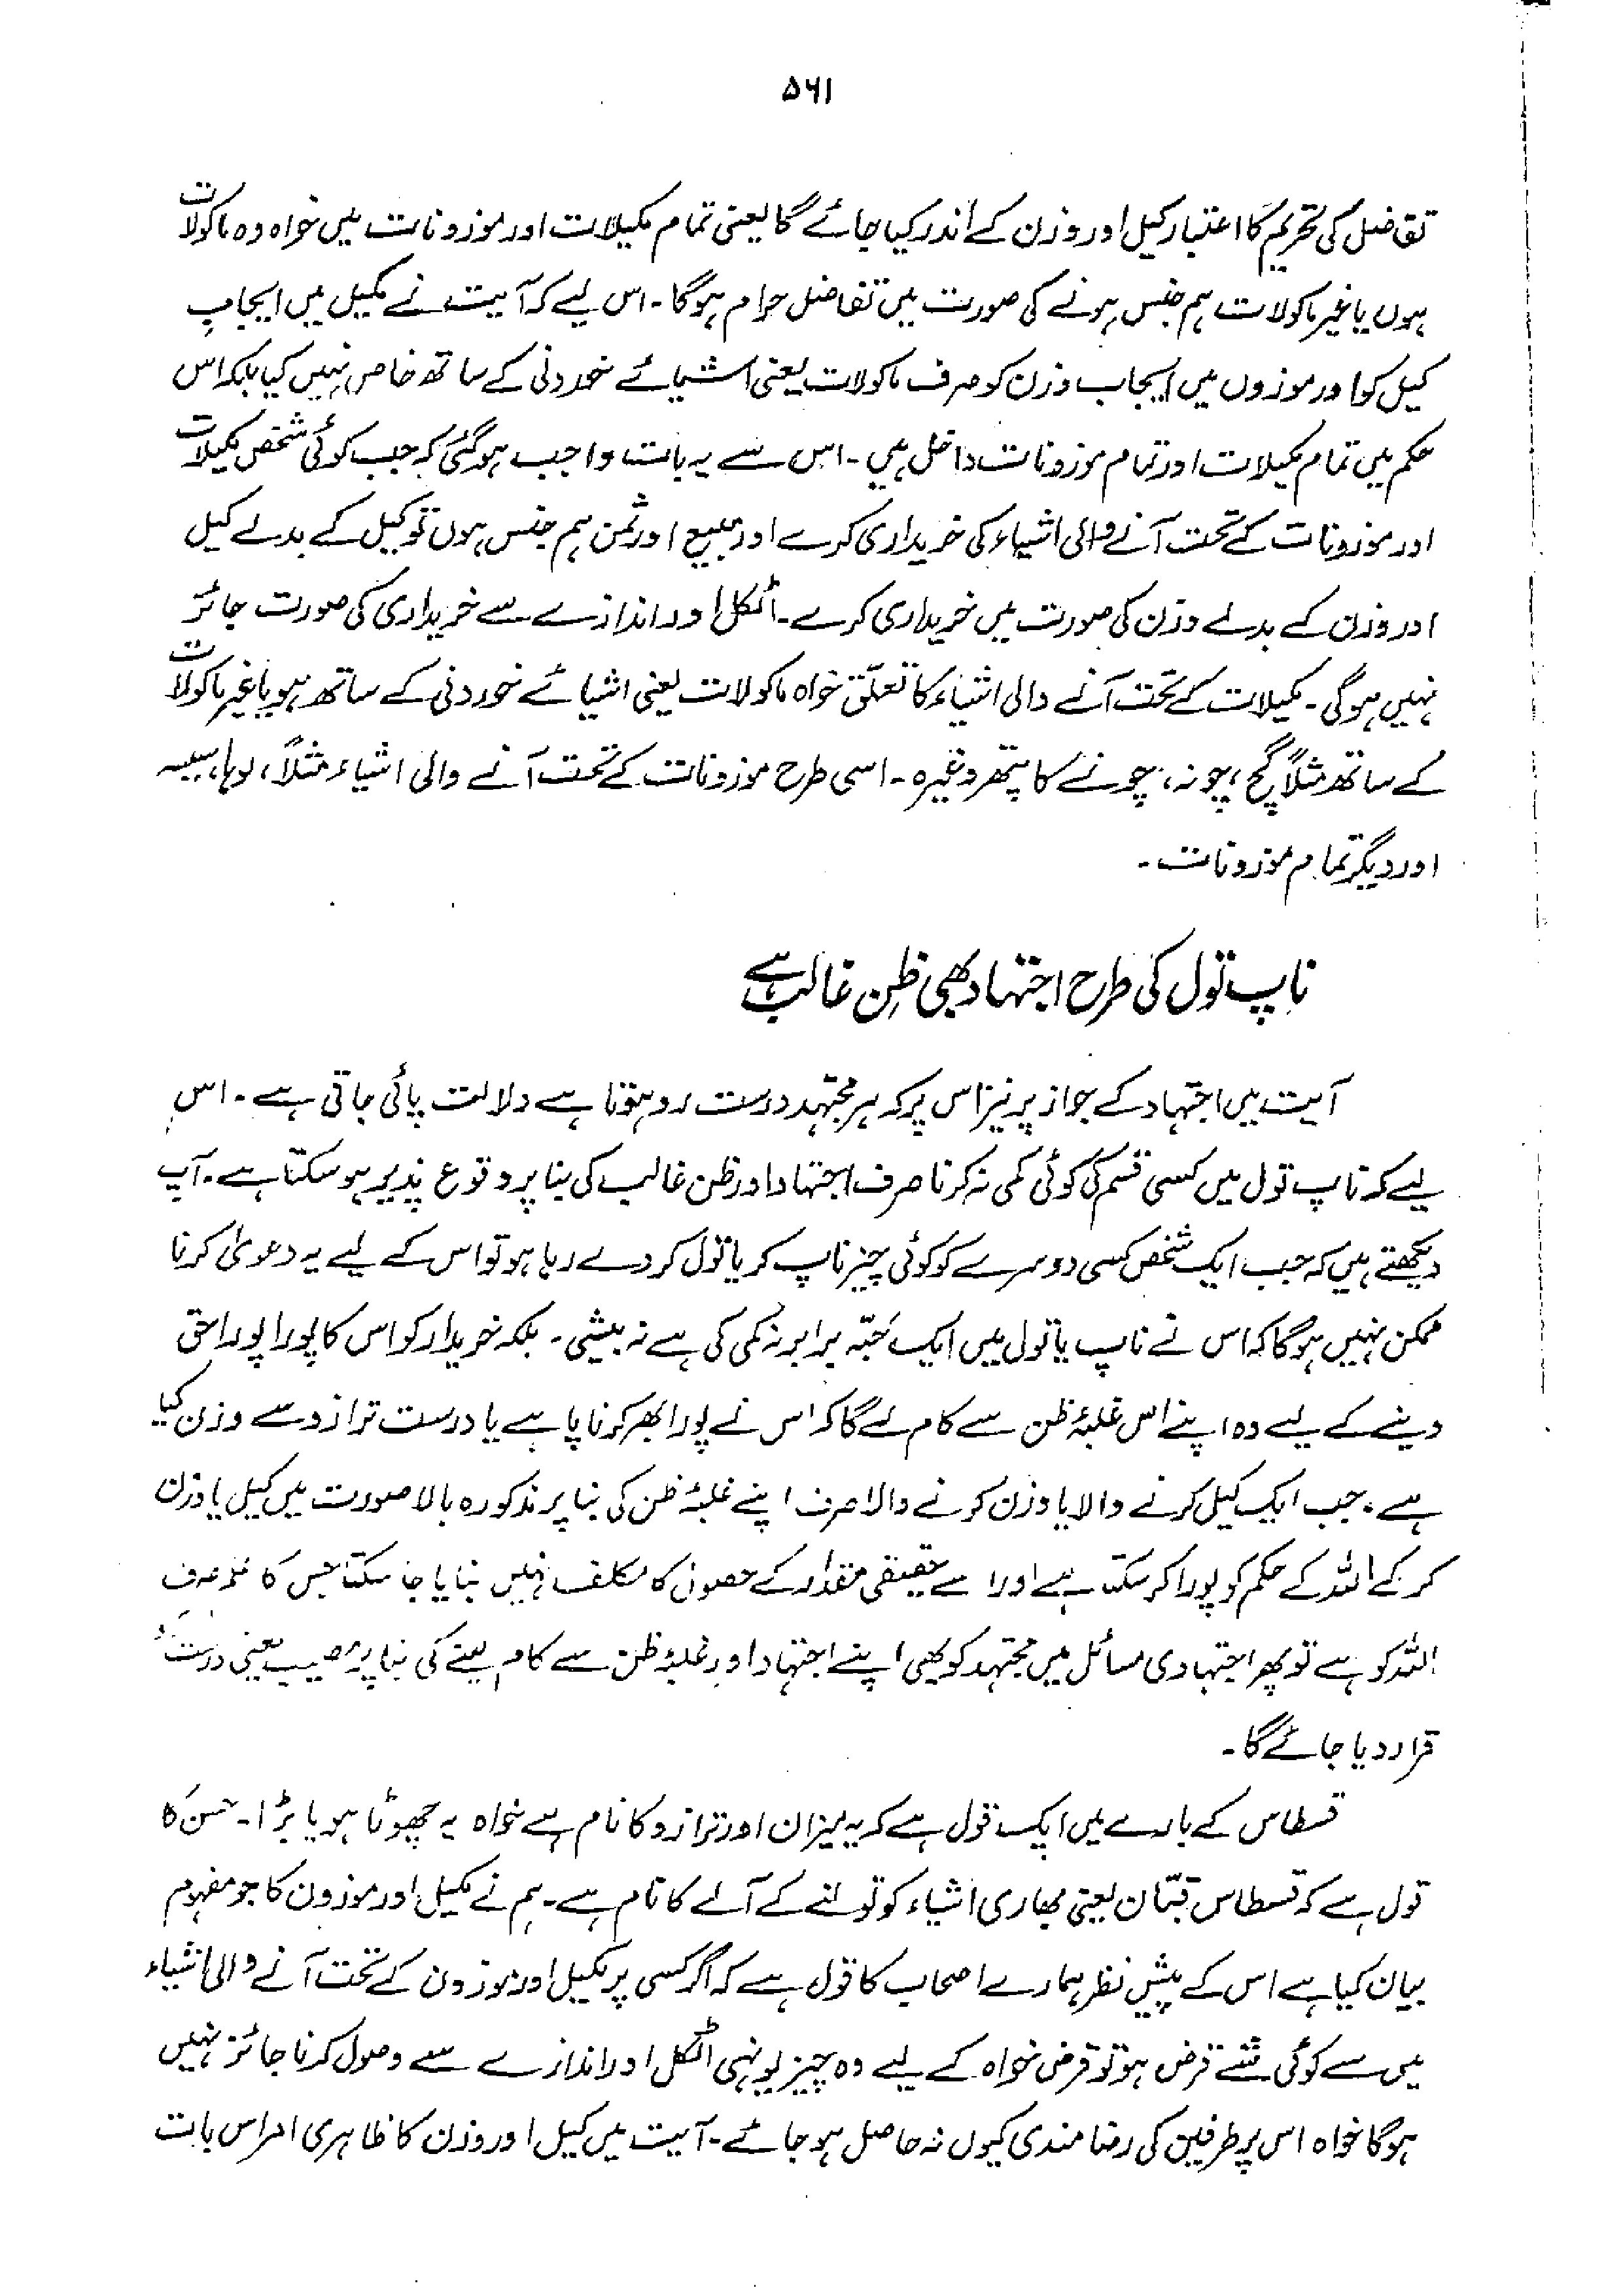 ۵۶۱
تفاضل کی تحریم کا اعتبار کیل اور وزن کے اندر کیا جائے گا یعنی تمام مکیلات اور موزونات میں خواہ وہ ماکولات
ہوں یا غیر ماکولات ہم جنس ہونے کی صورت میں تفاضل حرام ہوگا۔ اس لیے کہ آیت نے مکیل میں ایجابِ
کیل کو اور موزوں میں ایجاب وزن کو صرف ماکولات یعنی اشیائے خوردنی کے ساتھ خاص نہیں کیا بلکہ اس
حکم میں تمام مکیلات اور تمام موزونات داخل ہیں۔ اس سے یہ بات واجب ہوگئی کہ جب کوئی شخص مکیلات
اور موزونات کے تحت آنے والی اشیاء کی خریداری کرے اور مبیع اور ثمن ہم جنس ہوں تو کیل کے بدلے کیل
اور وزن کے بدلے وزن کی صورت میں خریداری کرے۔ اٹکل اور اندازے سے خریداری کی صورت جائز
نہیں ہوگی۔ مکیلات کے تحت آنے والی اشیاء کا تعلّق خواہ ماکولات یعنی اشیائے خوردنی کے ساتھ ہو یا غیر ماکولات
کے ساتھ مثلاً گچ، چونہ، چونے کا پتھر وغیرہ۔ اسی طرح موزونات کے تحت آنے والی اشیاء مثلاً، لوہا، سیسہ
اور دیگر تمام موزونات۔
ناپ تول کی طرح اجتہاد بھی ظنِ غالب ہے
آیت میں اجتہاد کے جواز پر نیز اس پر کہ ہر مجتہد درست رو ہوتا ہے دلالت پائی جاتی ہے۔ اس
لیے کہ ناپ تول میں کسی قسم کی کوئی کمی نہ کرنا صرف اجتہاد اور ظن غالب کی بنا پر وقوع پذیر ہو سکتا ہے۔ آپ
دیکھتے ہیں کہ جب ایک شخص کسی دوسرے کو کوئی چیز ناپ کر یا تول کر دے رہا ہو تو اس کے لیے یہ دعویٰ کرنا
ممکن نہیں ہوگا کہ اس نے ناپ یا تول میں ایک حبّہ برابر نہ کمی کی ہے نہ بیشی۔ بلکہ خریدار کو اس کا پورا پورا حق
دینے کے لیے وہ اپنے اس غلبۂ ظن سے کام لے گا کہ اس نے پورا بھر کر ناپا ہے یا درست ترازو سے وزن کیا
ہے۔ جب ایک کیل کرنے والا یا وزن کرنے والا صرف اپنے غلبۂ ظن کی بنا پر مذکورہ بالا صورت میں کیل یا وزن
کر کے اللہ کے حکم کو پورا کر سکتا ہے اور اسے حقیقی مقدار کے حصول کا مکلف نہیں بنایا جا سکتا جس کا علم صرف
اللہ کو ہے تو پھر اجتہادی مسائل میں مجتہد کو بھی اپنے اجتہاد اور غلبۂ ظن سے کام لینے کی بنا پر مصیب یعنی درست رو
قرار دیا جائے گا۔
قسطاس کے بارے میں ایک قول ہے کہ یہ میزان اور ترازو کا نام ہے خواہ یہ چھوٹا ہو یا بڑا۔ حسن کا
قول ہے کہ قسطاس قبّان یعنی بھاری اشیاء کو تولنے کے آلے کا نام ہے۔ ہم نے مکیل اور موزون کا جو مفہوم
بیان کیا ہے اس کے پیش نظر ہمارے اصحاب کا قول ہے کہ اگر کسی پر مکیل اور موزون کے تحت آنے والی اشیاء
میں سے کوئی شئے قرض ہو تو قرض خواہ کے لیے وہ چیز یونہی اٹکل اور اندازے سے وصول کرنا جائز نہیں
ہوگا خواہ اس پر طرفین کی رضا مندی کیوں نہ حاصل ہو جائے۔ آیت میں کیل اور وزن کا ظاہری امر اس بات